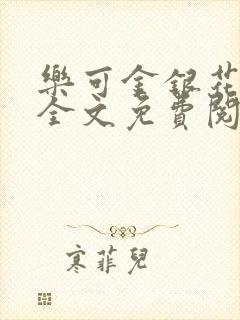 樂可金銀花
全文免費閱
寒菲兒